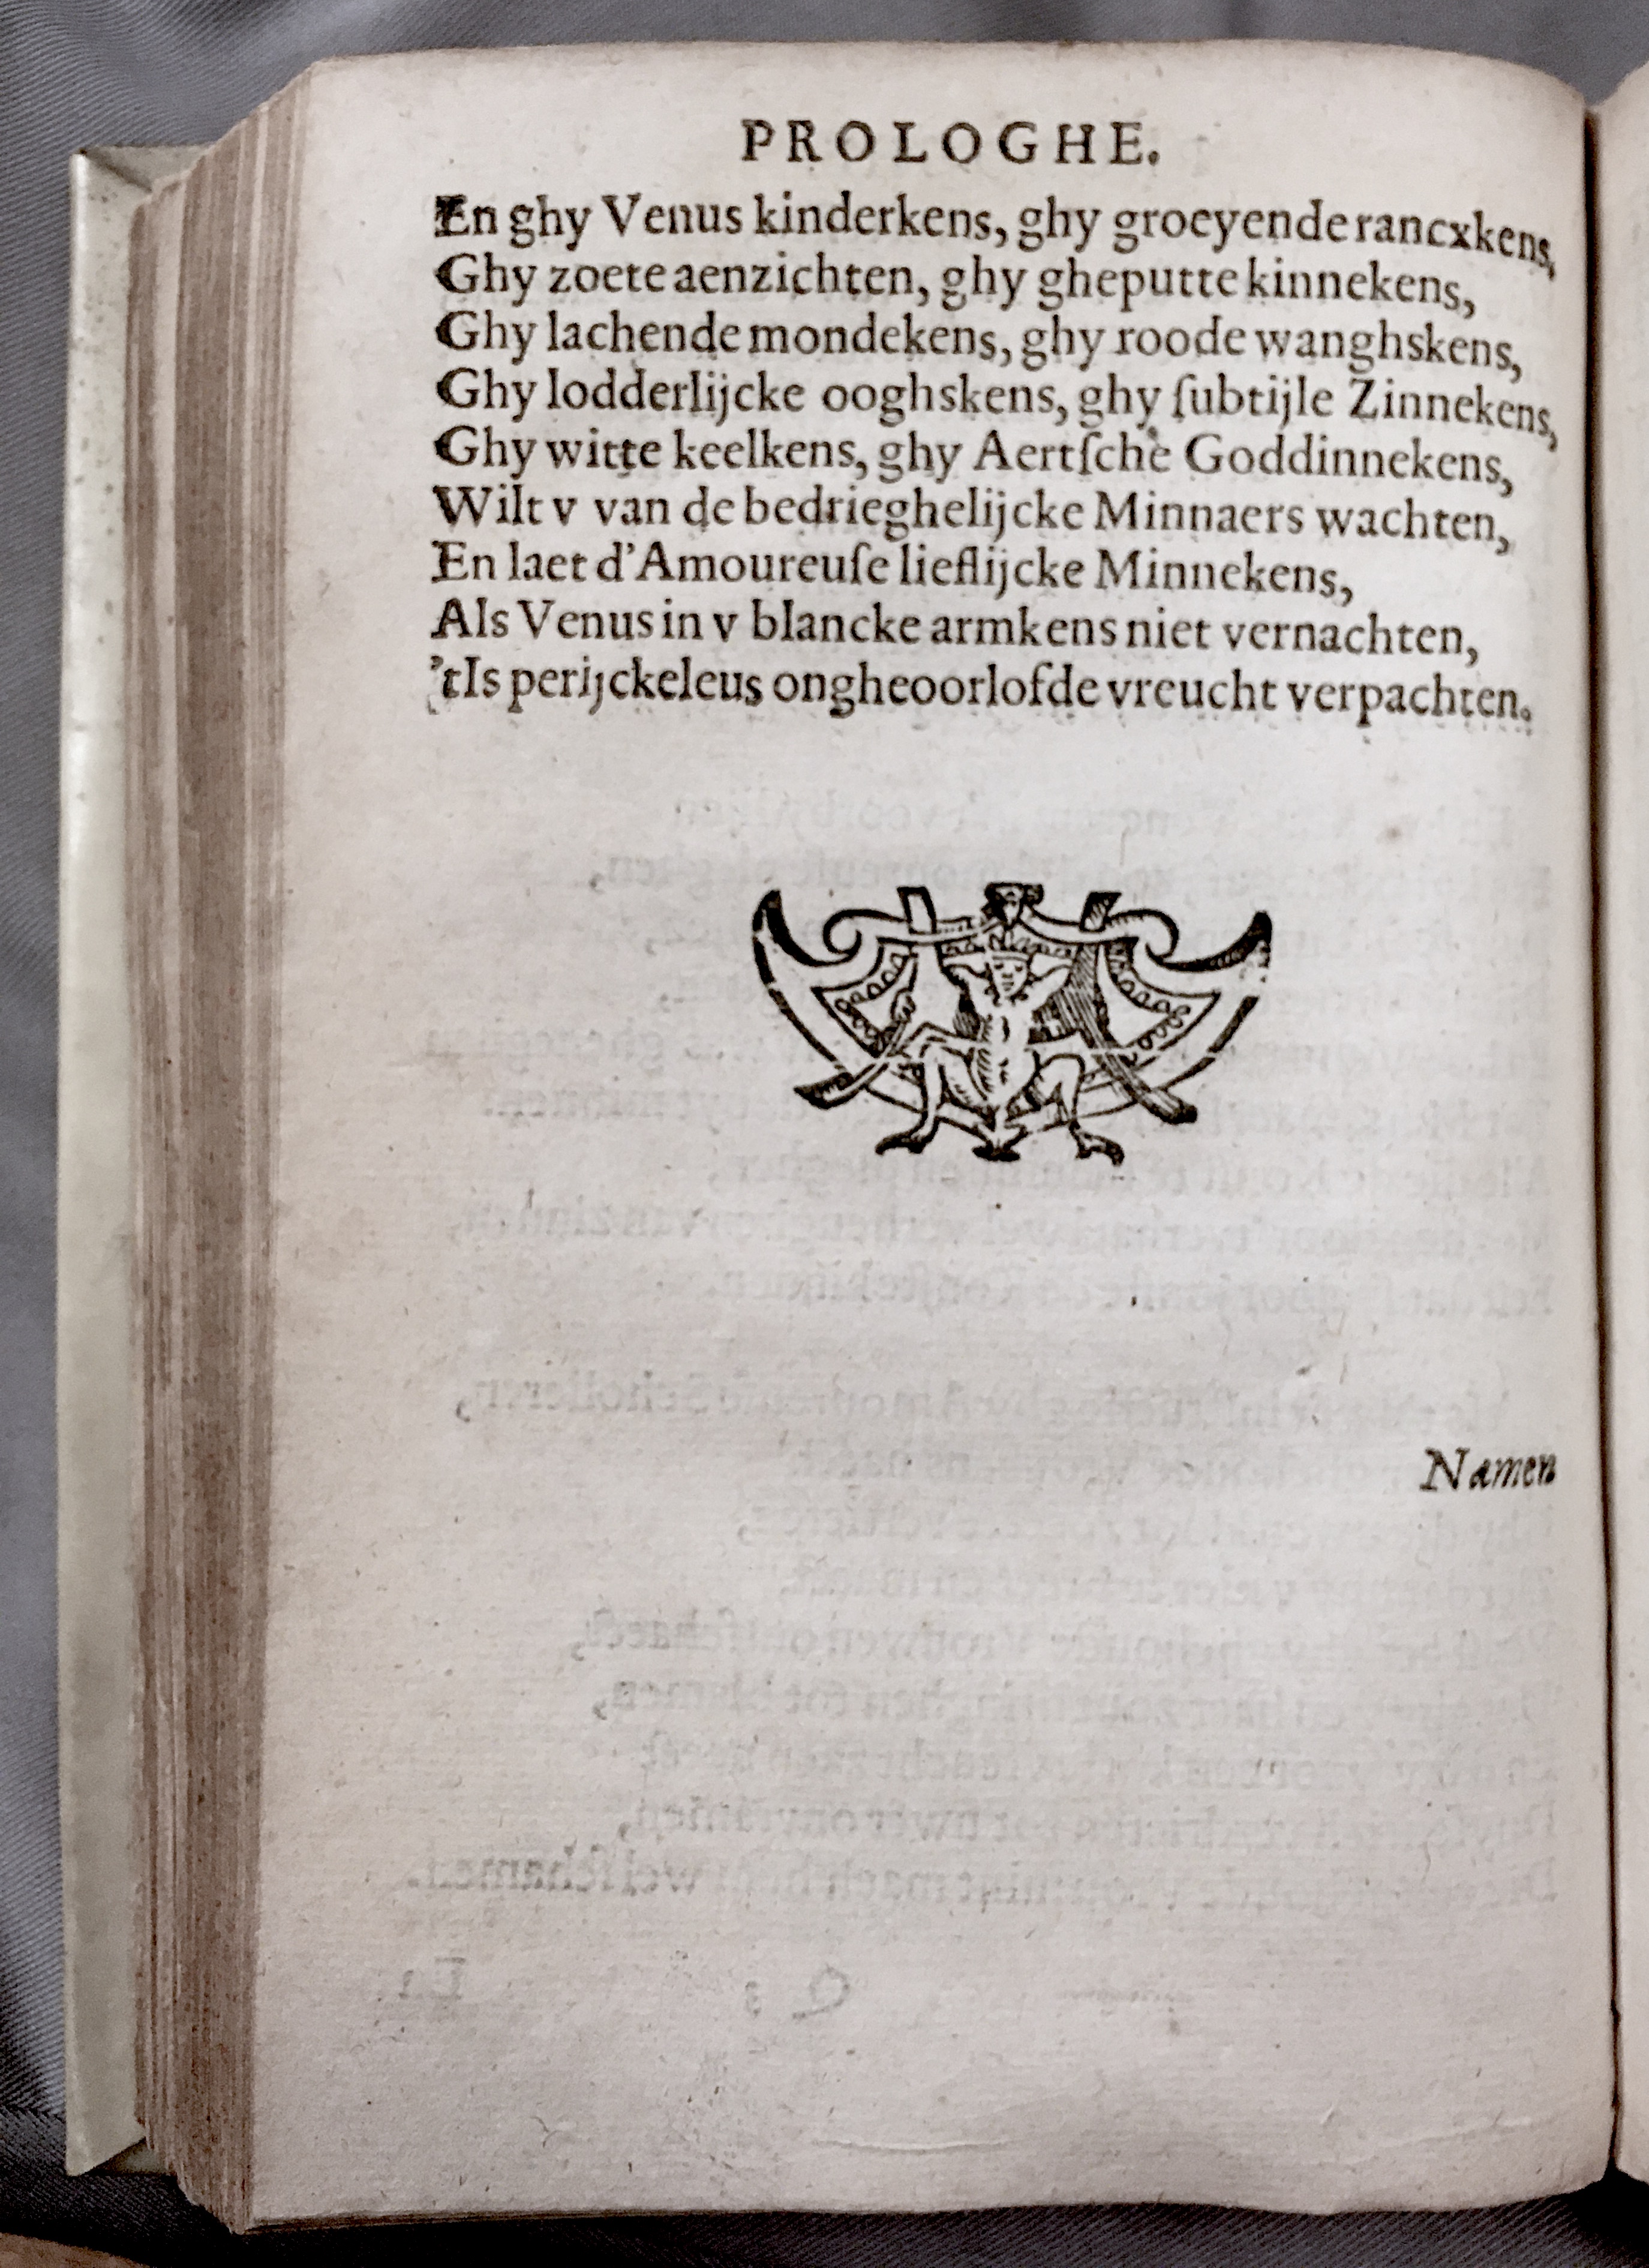 PROLOGHE.
En ghy Venus kinderkens, ghy groeyende rancxkens,
Ghy zoete aenzichten, ghy gheputte kinnekens,
Ghy lachende mondekens, ghy roode wanghskens,
Ghy lodderlijcke ooghskens, ghy ſubtijle Zinnekens,
Ghy witte keelkens, ghy Aertſche Goddinnekens,
Wilt v van de bedrieghelijcke Minnaers wachten,
En laet d'Amoureuſe lieflijcke Minnekens,
Als Venus in v blancke armkens niet vernachten,
'tIs perijckeleus ongheoorlofde vreucht verpachten.
Namen